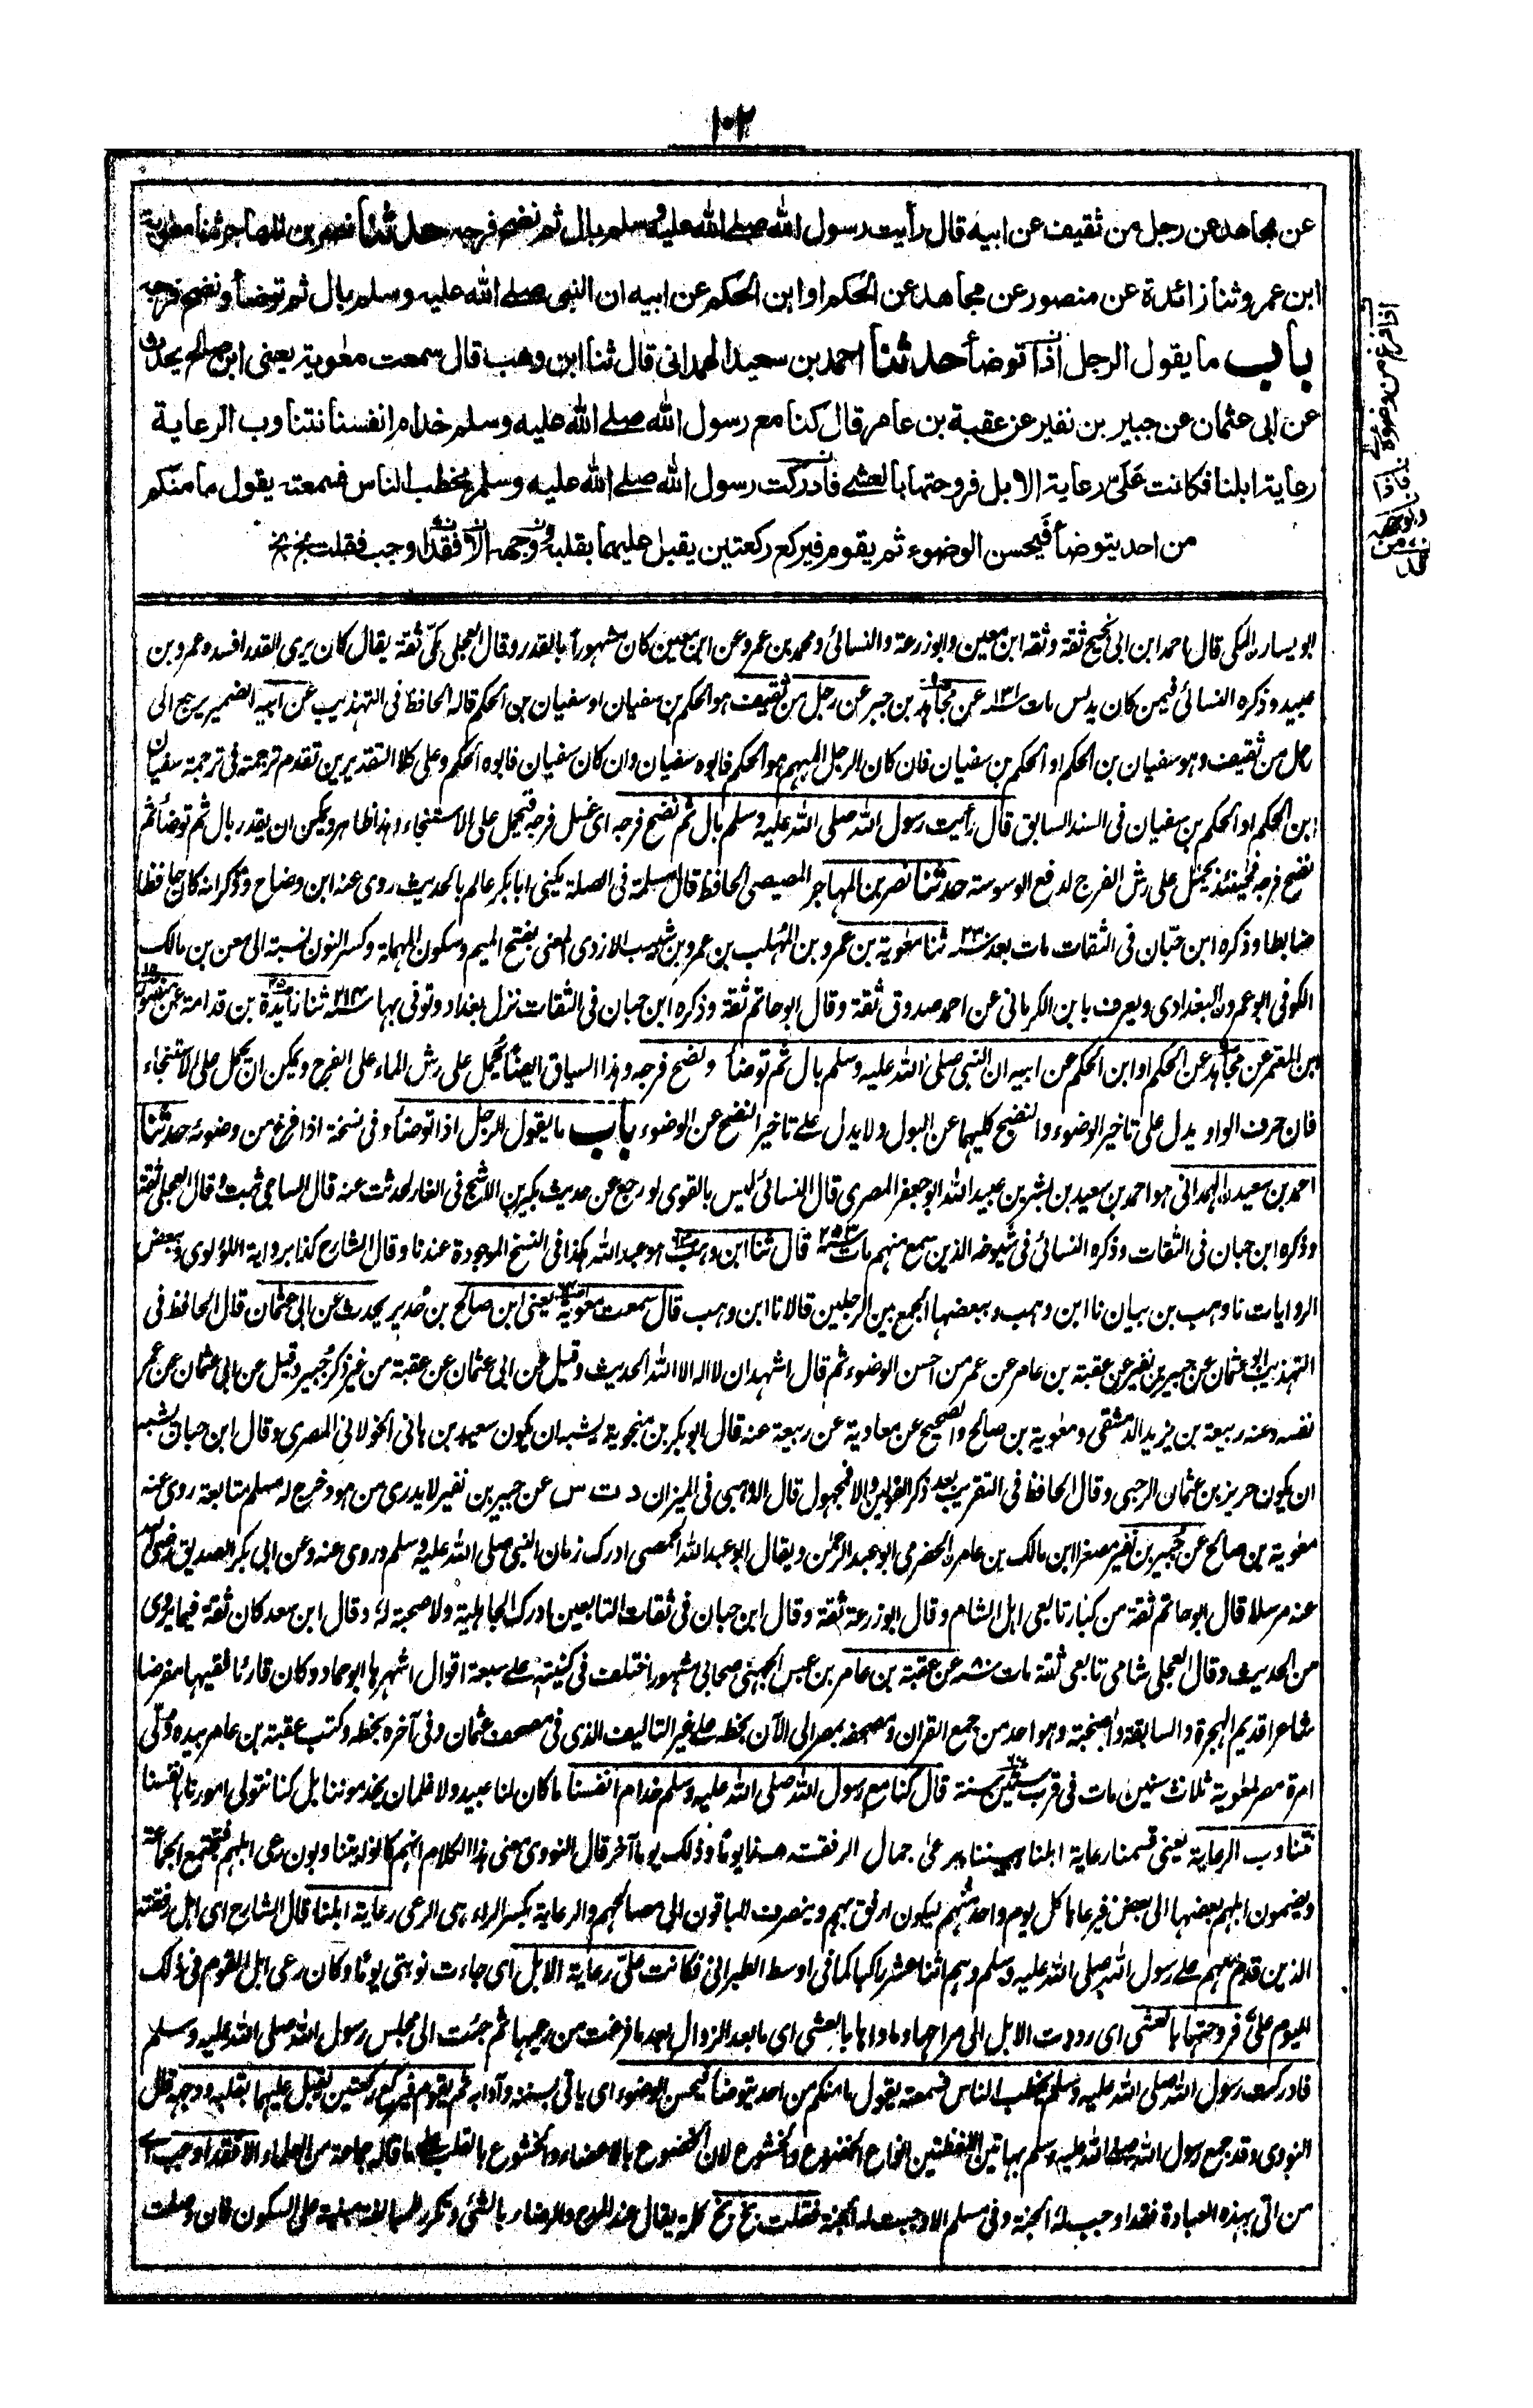 ١٠٢
عن مجاهد عن رجل من ثقيف عن ابيه قال رأيت رسول الله صلے الله عليه وسلم بال ثم نضح فرجه حدثنا نصر بن المهاجر ثنا معوية
ابن عمرو ثنا زائدة عن منصور عن مجاهد عن الحكم او ابن الحكم عن ابيه ان النبى صلے الله عليه وسلم بال ثم توضأ ونضح فرجه
باب ما يقول الرجل اذا توضأ حدثنا احمد بن سعيد الهمدانى قال ثنا ابن وهب قال سمعت معوية يعنى ابن صالح يحدث
عن ابى عثمان عن جبير بن نفير عن عقبة بن عامر قال كنا مع رسول الله صلے الله عليه وسلم خدام انفسنا نتناوب الرعاية
رعاية ابلنا فكانت عَلَىّ رعاية الابل فروحتها بالعشے فادركت رسول الله صلے الله عليه وسلم يخطب الناس فسمعته يقول ما منكم
من احد يتوضأ فيحسن الوضوء ثم يقوم فيركع ركعتين يقبل عليهما بقلبه ووجهه الا فقد اوجب فقلت بخ بخ
اذا فرغ من وضوءه
فاذا
ابو يسار المكى قال احمد ابن ابى نجيح ثقة وثقه ابن معين وابو زرعة والنسائى ومحمد بن عمر وعن ابن معين كان مشهوراً بالقدر وقال العجلى مكى ثقة يقال كان يرى القدر افسده عمرو بن
عبيد وذكره النسائى فيمن كان يدلس مات ١٣١ـه عن مجاهد بن جبر عن رجل من ثقيف هو الحكم بن سفيان او سفيان بن الحكم قاله الحافظ فى التهذيب عن ابيه الضمير يرجع الى
رجل من ثقيف وهو سفيان بن الحكم او الحكم بن سفيان فان كان الرجل المبهم هو الحكم فابوه سفيان وان كان سفيان فابوه الحكم وعلى كلا التقديرين تقدم ترجمته فى ترجمة سفيان
ابن الحكم او الحكم بن سفيان فى السند السابق قال رأيت رسول الله صلى الله عليه وسلم بال ثم نضح فرجه اى غسل فرجه فيحمل على الاستنجاء وهذا ظاهر ويمكن ان يقدر بال ثم توضأ ثم
نضح فرجه فحينئذ يحمل على رش الفرج لدفع الوسوسة حدثنا نصر بن المهاجر المصيصى الحافظ قال مسلمة فى الصلة يكنى ابا بكر عالم بالحديث روى عنه ابن وضاح وذكر انه كان حافظا
ضابطا وذكره ابن حبّان فى الثقات مات بعد ٢٣٠ـه ثنا معوية بن عمرو بن المهلب بن عمرو بن شبيب الازدى المعنى بفتح الميم وسكون المهملة وكسر النون نسبة الى معن بن مالك
الكوفى ابو عمرو البغدادى ويعرف بابن الكرمانى عن احمد صدوق ثقة وقال ابو حاتم ثقة وذكره ابن حبان فى الثقات نزل بغداد وتوفى بها ٢١٤ـه ثنا زائدة بن قدامة عن منصور
ابن المعتمر عن مجاهد عن الحكم او ابن الحكم عن ابيه ان النبى صلى الله عليه وسلم بال ثم توضأ ونضح فرجه وهذا السياق ايضًا يحمل على رش الماء على الفرج ويمكن ان يحمل على الاستنجاء
فان حرف الواو يدل على تاخير الوضوء والنضح كليهما عن البول ولا يدل علے تاخير النضح عن الوضوء باب ما يقول الرجل اذا توضأ وفى نسخة اذا فرغ من وضوئه حدثنا
احمد بن سعيد الهمدانى هو احمد بن سعيد بن بشر بن عبيد الله ابو جعفر المصرى قال النسائى ليس بالقوى لو رجع عن حديث بكير بن الاشج فى الغار لحدثت عنه قال الساجى ثبت وقال العجلى ثقة
وذكره ابن حبان فى الثقات وذكره النسائى فى شيوخه الذين سمع منهم مات ٢٥٣ـه قال ثنا ابن وهب هو عبد الله هكذا فى النسخ الموجودة عندنا وقال الشارح كذا برواية اللؤلوى وبعض
الروايات نا وهب بن بيان نا ابن وهب وببعضها الجمع بين الرجلين قالا نا ابن وهب قال سمعت معوية يعنى ابن صالح بن حُدير يحدث عن ابى عثمان قال الحافظ فى
التهذيب ابو عثمان عن جبير بن نفير عن عقبة بن عامر عن عمر من احسن الوضوء ثم قال اشهد ان لا اله الا الله الحديث وقيل عن ابى عثمان عن عقبة من غير ذكر جُبير وقيل عن ابى عثمان عن عمر
نفسه وعنه ربيعة بن يزيد الدمشقى ومعوية بن صالح والصحيح عن معاوية عن ربيعة عنه قال ابو بكر بن منجوية يشبه ان يكون سعيد بن هانى الخولانى المصرى وقال ابن حبان يشبه
ان يكون حريز بن عثمان الرحبى وقال الحافظ فى التقريب بعد ذكر القولين والا فمجهول قال الذهبى فى الميزان د ت س عن جبير بن نفير لا يدرى من هو وخرج له مسلم متابعة روى عنه
معوية بن صالح عن جُبير بن نُفير مصغرا ابن مالك بن عامر الحضرمى ابو عبد الرحمٰن ويقال ابو عبد الله الحمصى ادرك زمان النبى صلى الله عليه وسلم وروى عنه وعن ابى بكر الصديق رضى الله
عنه مرسلا قال ابو حاتم ثقة من كبار تابعى اهل الشام وقال ابو زرعة ثقة وقال ابن حبان فى ثقات التابعين ادرك الجاهلية ولا صحبة له وقال ابن سعد كان ثقة فيما يروى
من الحديث وقال العجلى شامى تابعى ثقة مات ٨٠ـه عن عقبة بن عامر بن عبس الجهنى صحابى مشهور اختلف فى كنيته علے سبعة اقوال اشهرها ابو حماد وكان قارئا فقيها مفرضا
شاعرا قديم الهجرة والسابقة والصحبة وهو احد من جمع القران ومصحفه بمصر الى الآن بخطه على غير التاليف الذى فى مصحف عثمان وفى آخره بخطه وكتب عقبة بن عامر بيده ولى
امرة مصر لمعوية ثلاث سنين مات فى قرب ستين سنة قال كنا مع رسول الله صلى الله عليه وسلم خدام انفسنا ما كان لنا عبيد ولا غلمان يخدموننا بل كنا نتولى امورنا بانفسنا
نتناوب الرعاية يعنى قسمنا رعاية ابلنا بيننا جمال الرفقة هذا يومًا وذلك يوما آخر قال النووى معنى هذا الكلام انهم كانوا يتناوبون رعى ابلهم فتجتمع الجماعة
ويضمون ابلهم بعضها الى بعض فيرعاها كل يوم واحد منهم ليكون ارفق بهم وينصرف الباقون الى مصالحهم والرعاية بكسر الراء هى الرعى رعاية ابلنا قال الشارح اى ابل رفقته
الذين قدم معهم علے رسول الله صلى الله عليه وسلم وهم اثنا عشر راكبا كما فى اوسط الطبرانى فكانت علىّ رعاية الابل اى جاءت نوبتى يومًا وكان رعى ابل القوم فى ذلك
اليوم علىّ فروحتها بالعشى اى رددت الابل الى مراحها وماواها بالعشى اى ما بعد الزوال بعد ما فرغت من رعيها ثم جئت الى مجلس رسول الله صلى الله عليه وسلم
فادركت رسول الله صلى الله عليه وسلم يخطب الناس فسمعته يقول ما منكم من احد يتوضأ فيحسن الوضوء اى ياتى بسننه وآدابه ثم يقوم فيركع ركعتين يقبل عليهما بقلبه ووجهه قال
النووى وقد جمع رسول الله صلى الله عليه وسلم بهاتين اللفظتين انواع الخضوع والخشوع لان الخضوع بالاعضاء والخشوع بالقلب على ما قاله جماعة من العلماء الا فقد اوجب اى
من اتى بهذه العبادة فقد اوجب له الجنة وفى مسلم الا وجبت له الجنة فقلت بخ بخ كلمة يقال عند المدح والرضاء بالشئ وتكرر للمبالغة مبنية على السكون فان وصلت